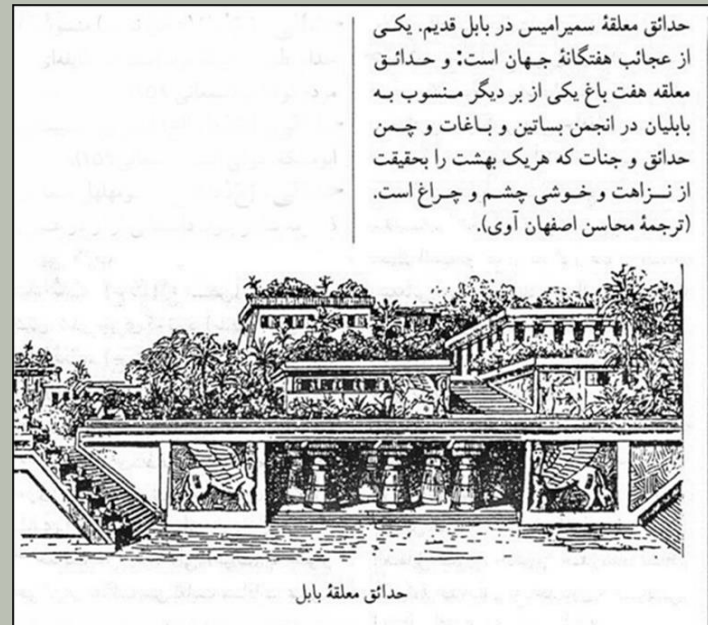 حدائق معلقهٔ سمیرامیس در بابل قدیم. یکی
از عجائب هفتگانهٔ جهان است: و حدائق
معلقه هفت باغ یکی از بر دیگر منسوب به
بابلیان در انجمن بساتین و باغات و چمن
حدائق و جنات که هریک بهشت را بحقیقت
از نزاهت و خوشی چشم و چراغ است.
(ترجمهٔ محاسن اصفهان آوی).
حدائق معلقهٔ بابل